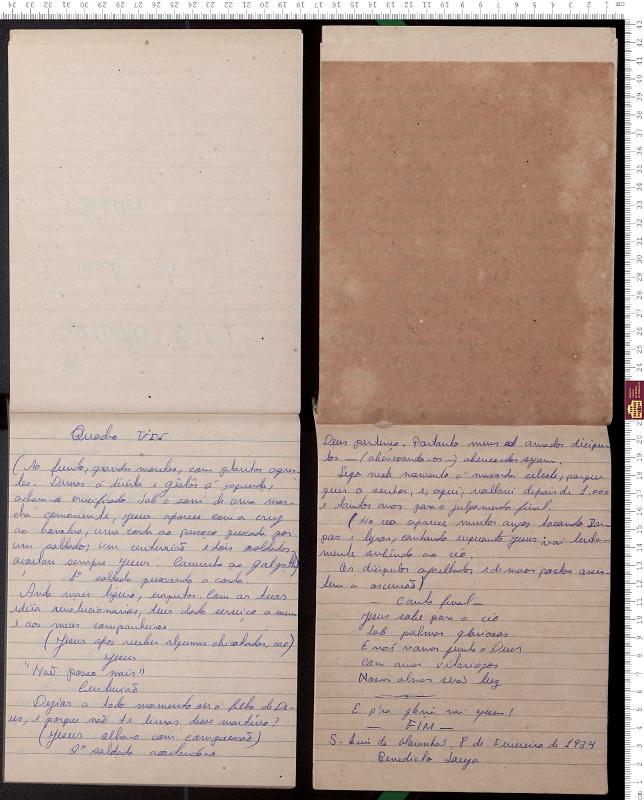 Quadro VII
(Ao fundo, grandes montes, com plantas agres-
tes. Dimas á direita e gestas á esquerda,
acham-se crucificados. Sob o som de uma mar-
cha comovente, Jesus aparece com a cruz
ao hombro, uma corda ao pescoço puxada por
um soldado; um centurião e dois soldados
Jesus. Caminho ao galgotha)
1º soldado puxando a corda.
Anda mais ligeiro, impostor. Com as tuas
idéia revolucionarias, teus dado serviço a mim
e aos meus companheiros.
(Jesus apos receber algumas chicotadas, cae)
Jesus
"Não posso mais"!
Centurião
Dizias a todo momento ser o filho de De-
us, e porque não te livras desse martirio?
(Jesus olha-o com compaixão)
2º soldado açoitando-o
Deus pertence. Portanto meus amados dicipu-
los — (abençoando-os —) abençoados sejam.
Sigo neste momento á morada celeste, porque
quer o senhor, e, aqui, voltarei depois de 1.000
e tantos anos para o julgamento final.
(No céo aparece muitos anjos tocando Har-
pas e lyras, cantando enquanto Jesus vai lenta-
mente subindo ao céo.
Os dicipulos ajoelhados e de maos postas assis-
tem a ascensão)
Canto final —
Jesus sobe para o céo
Sob palmas gloriosas
E nós vamos junto a Deus
Com amor
Nossas almas será luz
E p'ra gloria vai Jesus!
— FIM —
S. Luis do Maranhão, 8 de Fevereiro de 1934